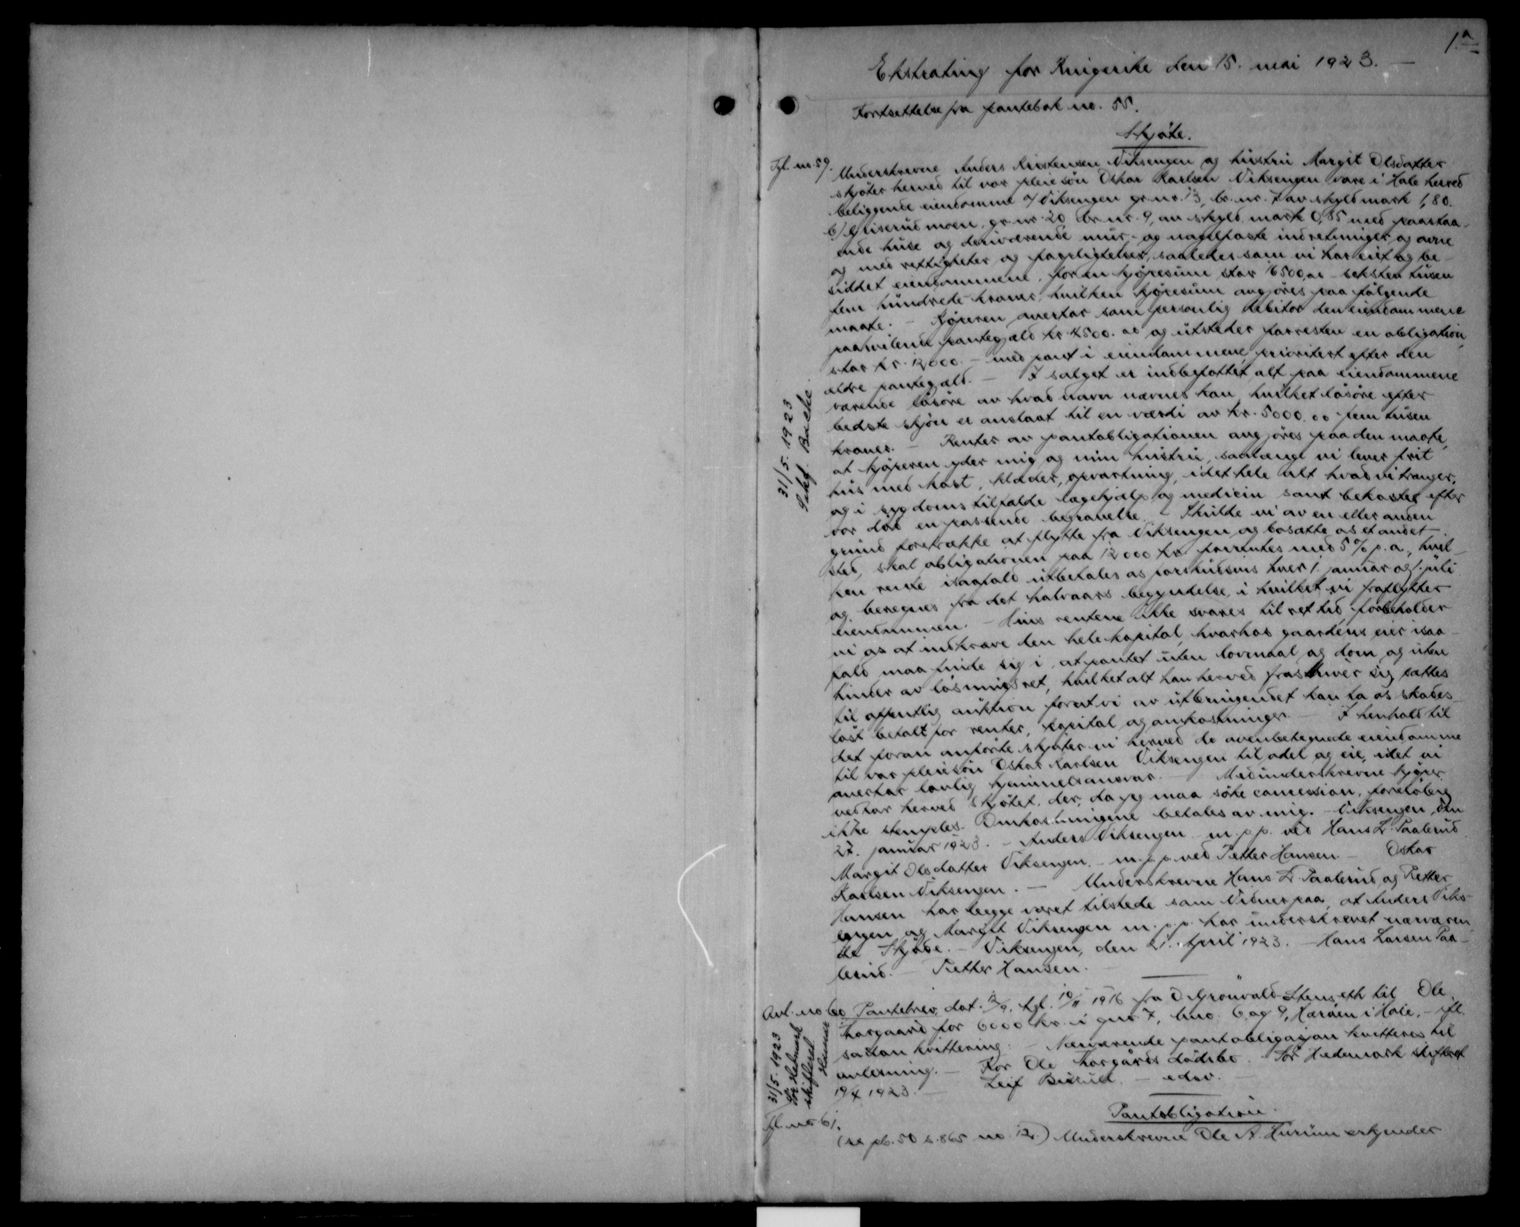 1a
Ekstrating for Ringerike den 15. mai 1923. —
Fortsettelse fra pantebok no. 55.
Skjøte.
Tgl. no 59. Underskrevne Anders Kristensen Viksengen og hustru Margit Olsdatter
skjøter herved til vor pleiesøn Oskar Karlsen Viksengen vore i Hole herred
beliggende eiendomme a/ Viksengen gr. nr. 13, br. nr. 7 av skyld mark 1,80.
b/ moen, gr. nr. 20 br. nr. 9, av skyld mark 0,85 med paastaa-
ende huse og deriværende mur- og nagelfaste indretninger og ovne
og med rettigheter og forpligtelser, saaledes som vi har eiet og be-
siddet eiendommene, for en kjøpesum stor 16500,00 seksten tusen
fem hundrede kroner, hvilken kjøpesum avgjøres paa følgende
maate. — Kjøperen overtar som personlig debitor den eiendommene
paahvilende pantegjæld kr. 4500.00 og utsteder for resten en obligation,
stor kr. 12000. — med pant i eiendommene prioritert efter den
ældre pantegjæld. — I salget er indbefattet alt paa eiendommene
værende løsøre av hvad navn nævnes kan, hvilket løsøre efter
bedste skjøn er anslaat til en værdi av kr. 5000,00 fem tusen
kroner. — Renter av pantobligationen avgjøres paa den maate,
at kjøperen yder mig og min hustru, saalænge vi lever frit
hus med kost, klæder, opvartning, i det hele alt hvad vi trænger,
og i sygdomstilfælde lægehjælp og medicin samt bekoster efter
vor død en passende begravelse. — Skulde vi av en eller anden
grund foretrække at flytte fra Viksengen og bosætte os et andet
sted, skal obligationen paa 12000 kr. forrentes med 5% p.a., hvil-
ken rente isaafald utbetales os forskudsvis hver 1. januar og 1. juli
og beregnes fra det halvaars begyndelse, i hvilket vi fraflytter
eiendommen. — Hvis rentene ikke svares til rett tid, forbeholder
vi os at indkræve den hele kapital, hvorhos gaardens eier isaa-
fald maa finde sig i, at pantet uten lovmaal og dom og uten
hinder av løsningsret, hvilket alt han herved fraskriver sig, sættes
til offentlig auktion forat vi av utbringendet kan ta os skades-
løst betalt for renter, kapital og omkostninger. — I henhold til
det foran anførte skjøter vi herved de ovenbetegnede eiendomme
til vor pleiesøn Oskar Karlsen Viksengen til odel og eie, idet vi
overtar lovlig hjemmelsansvar. — Medunderskrevne kjøper
vedtar herved skjøtet, der, da jeg maa søke concession, foreløbig
ikke stemples. Omkostningene betales av mig. — Viksengen, den
27. januar 1923. — Anders Viksengen m.p.p. ved Hans L. Paalerud
Margit Olsdatter Viksengen. — m.p.p. ved Petter Hansen — Oskar
Karlsen Viksengen. — Underskrevne Hans L. Paalerud og Petter
Hansen har begge været tilstede som Vidner paa, at Anders Viks-
engen og Margit Viksengen m.p.p. har underskrevet nærværen-
de Skjøte. — Viksengen, den 21. April 1923. — Hans Larsen Paa-
lerud. — Petter Hansen. —
31/5. 1923
Avl. no 60 Pantebrev, dat. tgl. 1916 fra til Ole
Korgaard for 6000 kr. i gno 7, bno. 6 og 9, i Hole. —
saadan kvittering: — Nærværende pantobligasjon kvitteres til
avlesning. — For Ole Korgårds dødsbo. Sør Hedemark skifteret
19/4 1923. — Leif — edsv.
31/5. 1923
Sør Hedmark
skifterett
Hamar
Tgl. no 61.
Pantobligation.
(se pb. 50 s. 865 no 12.) Underskrevne Ole A. Hurum erkjender